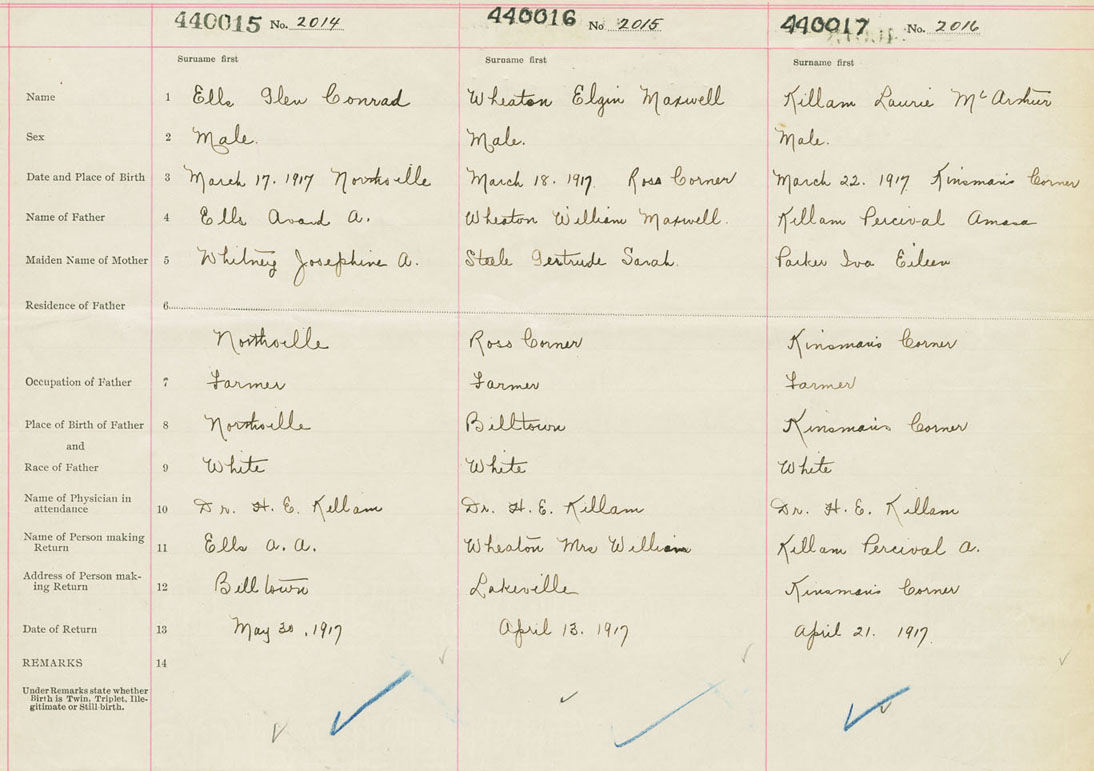 440015 No. 2014 440016 No 2015 440017 No. 2016
Surname first Surname first Surname first
Name 1 Ells Glen Conrad Wheaton Elgin Maxwell Killam Laurie McArthur
Sex 2 Male. Male. Male.
Date and Place of Birth 3 March 17. 1917 Northville March 18. 1917 Ross Corner March 22. 1917 Kinsman's Corner
Name of Father 4 Ells Avard A. Wheaton William Maxwell. Killam Percival Amasa
Maiden Name of Mother 5 Whitney Josephine A. Steele Gertrude Sarah. Parker Iva Eileen
Residence of Father 6
Northville Ross Corner Kinsman's Corner
Occupation of Father 7 Farmer Farmer Farmer
Place of Birth of Father 8 Northville Billtown Kinsman's Corner
and
Race of Father 9 White White White
Name of Physician in
attendance 10 Dr. H. E. Killam Dr. H. E. Killam Dr. H. E. Killam
Name of Person making
Return 11 Ells A. A. Wheaton Mrs William Killam Percival A.
Address of Person mak-
ing Return 12 Billtown Lakeville Kinsman's Corner
Date of Return 13 May 30, 1917 April 13. 1917 April 21. 1917.
REMARKS 14
Under Remarks state whether
Birth is Twin, Triplet, Ille-
gitimate or Still-birth.